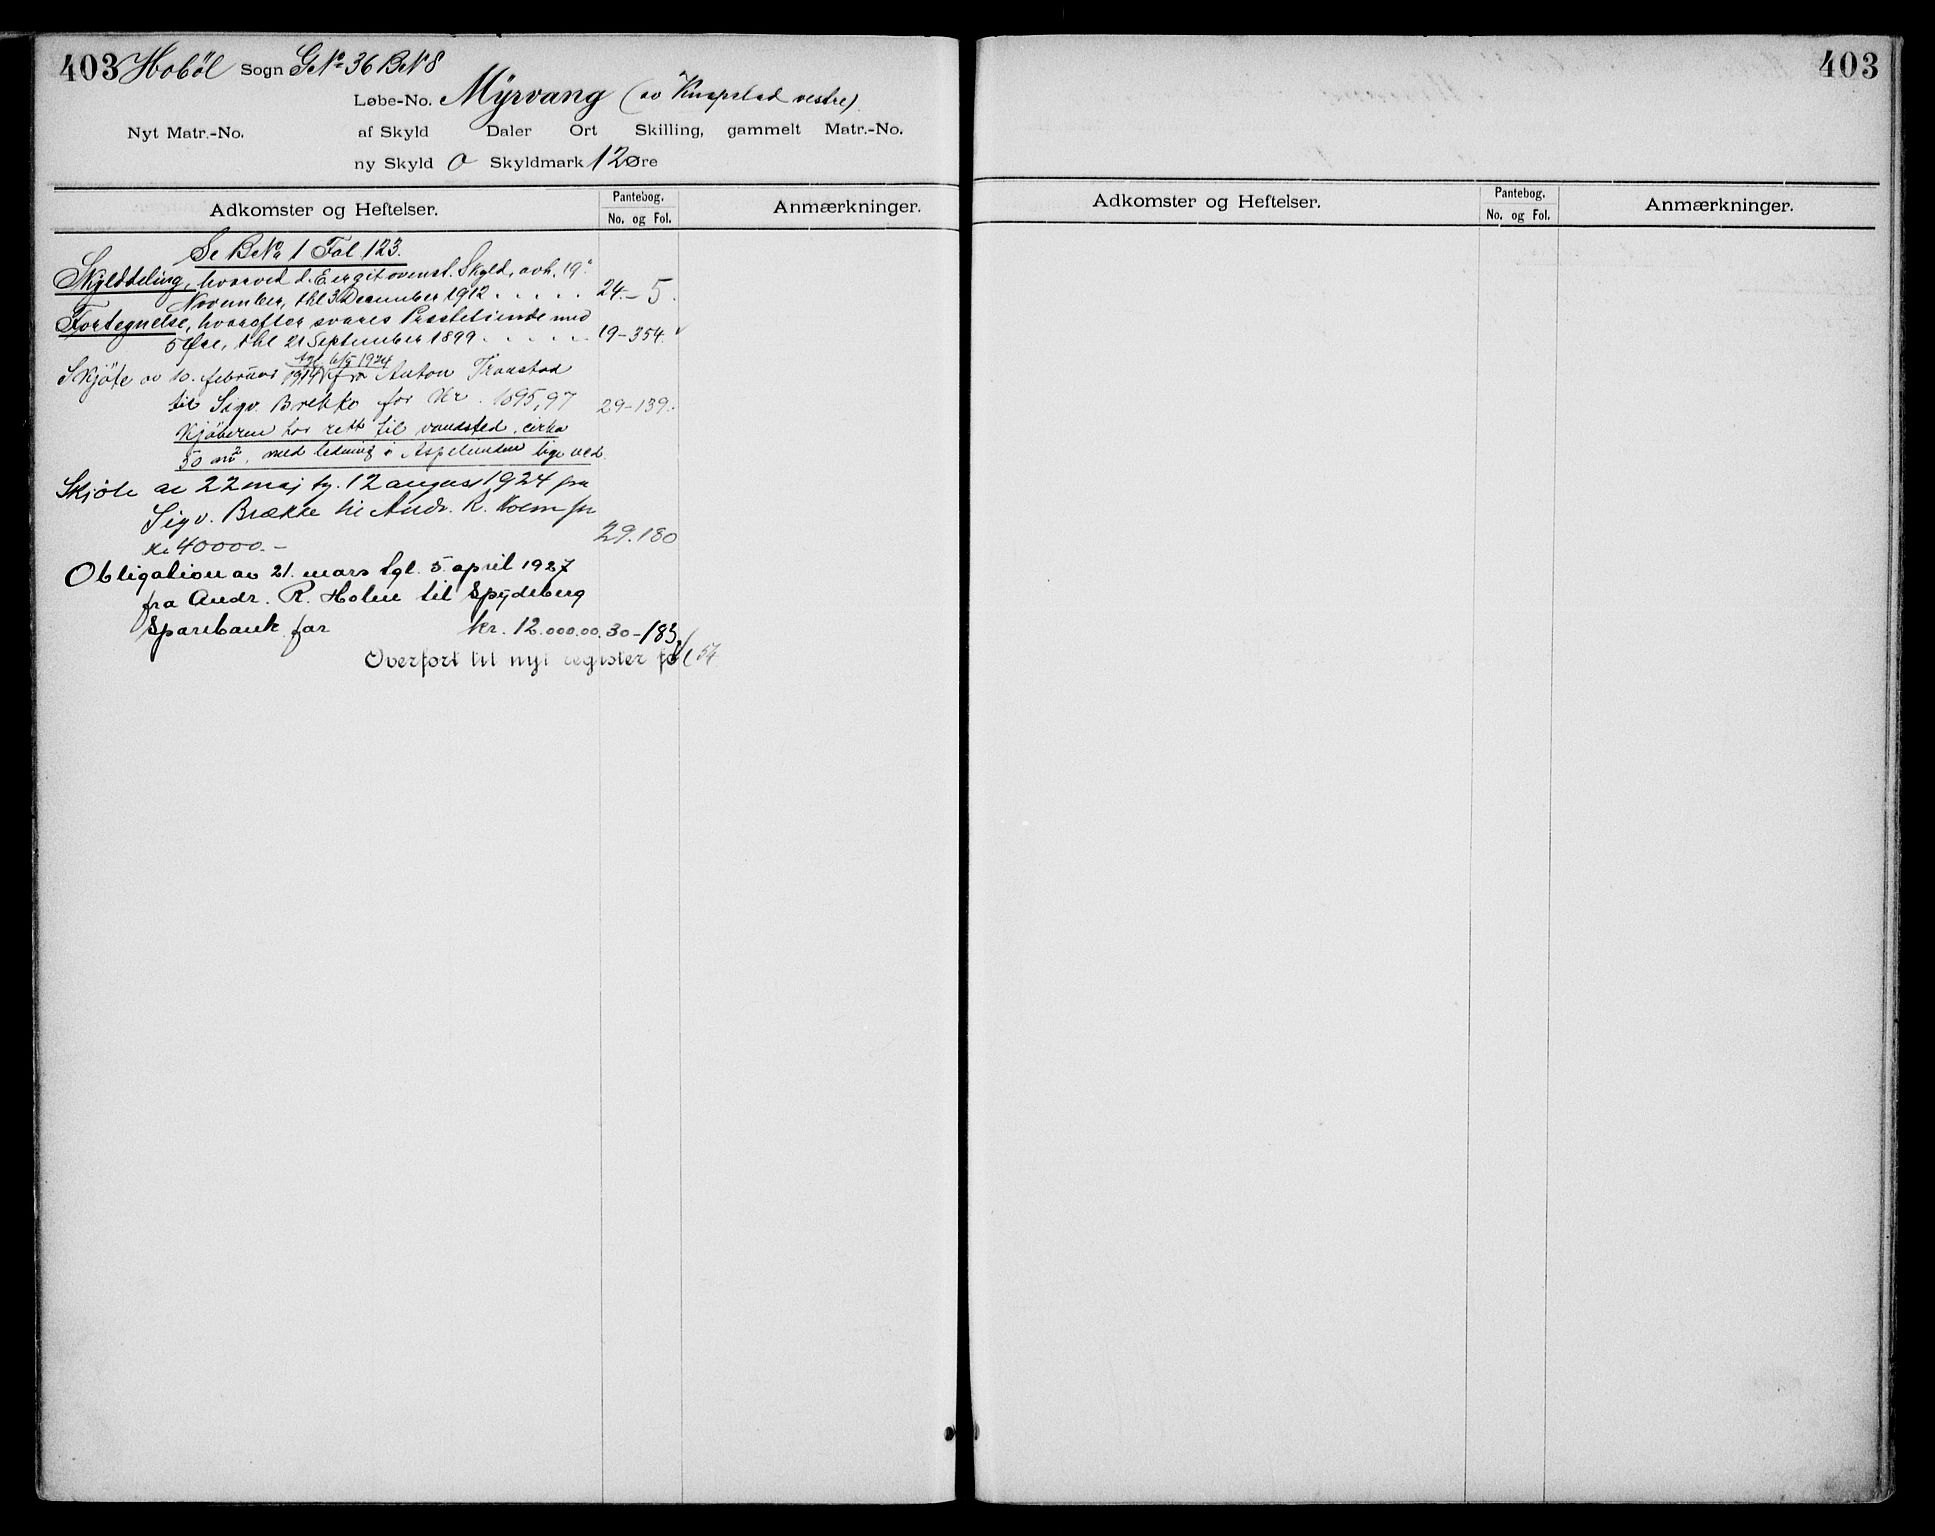 403 Hobøl Sogn GNo 36 BN 8
Løbe-No. Myrvang (av Knapstad vestre)
Nyt Matr.-No. af Skyld Daler Ort Skilling, gammelt Matr.-No.
ny Skyld 0 Skyldmark 12 Øre
Adkomster og Heftelser. Pantebog. No. og Fol. Anmærkninger.
Se BNo 1 Fol 123.
Skylddeling, hvorved d. E er git ovenst. Skyld, avh. 19.
November, thl 3 December 1912 . . . . . 24 - 5.
Fortegnelse, hvorefter svares Præstetiende med
5 Øre, thl 21 September 1899 . . . . . 19-354.
tgl. 6/5 1924
Skjøte av 10. februar 1914 fra Anton Tronstad
til Sigv. Brekke for Kr. 1695,97 29-139.
Kjøberen har rett til vandsted, cirka
50 m2, med ledning i Aspelunden lige ved.
Skjøte av 22 maj tg. 12 august 1924 fra
Sigv. Brække til Andr. R. Holm for
kr 40000.- 29.180
Obligation av 21. mars tgl. 5. april 1927
fra Andr. R. Holm til Spydeberg
Sparebank for kr. 12.000.00. 30-183
Overført til nyt register fol 54.
403
Adkomster og Heftelser. Pantebog. No. og Fol. Anmærkninger.